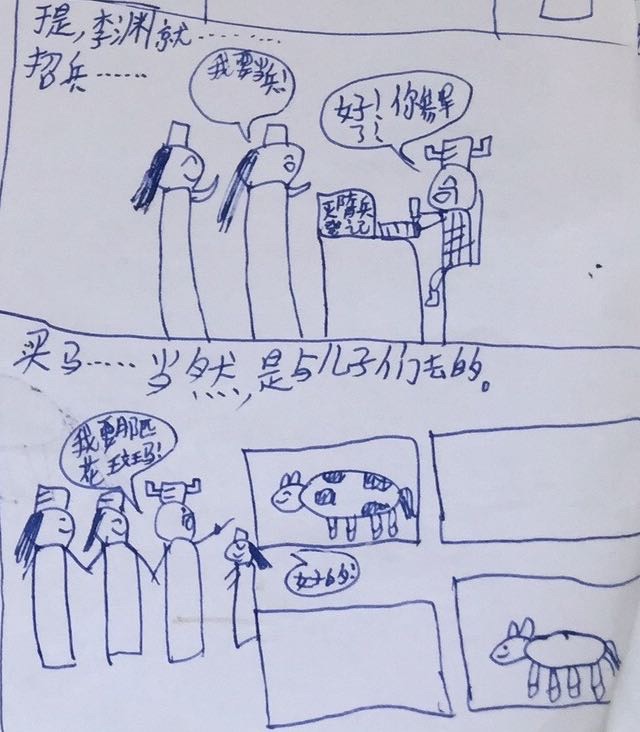 于是,李渊就………
招兵……
我要当兵!
好!你
了!
灭隋兵
登记
买马……当然,是与儿子们去的。
我要那匹
花斑马!
好的!